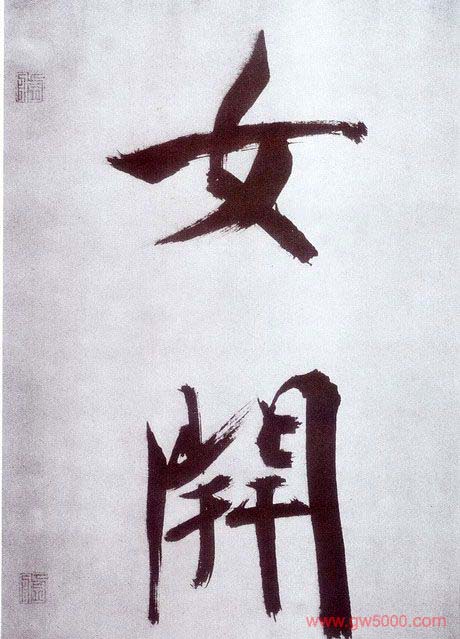 女
開
www.gw5000.com